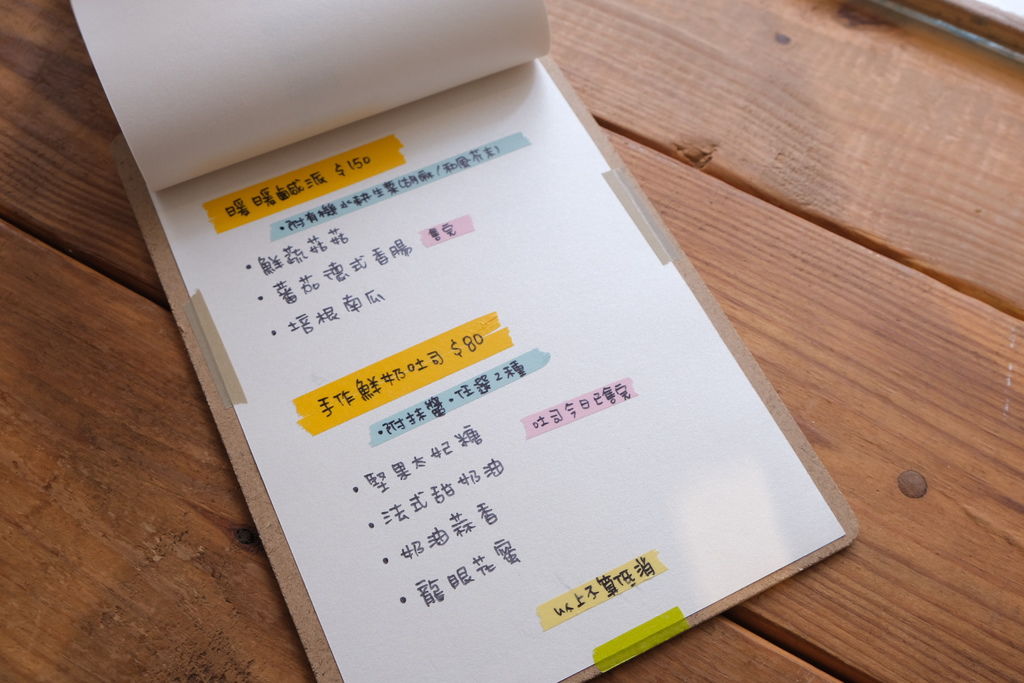 暖暖鹹派 $150
•附有機小耕生菜(胡麻/和風芥末)
•鮮蔬菇菇
•蕃茄德式香腸 售完
•培根南瓜
手作鮮奶吐司 $80
•附抹醬•任選2種
吐司今日已售完
•堅果太妃糖
•法式甜奶油
•奶油蒜香
•龍眼花蜜
以上不算低消